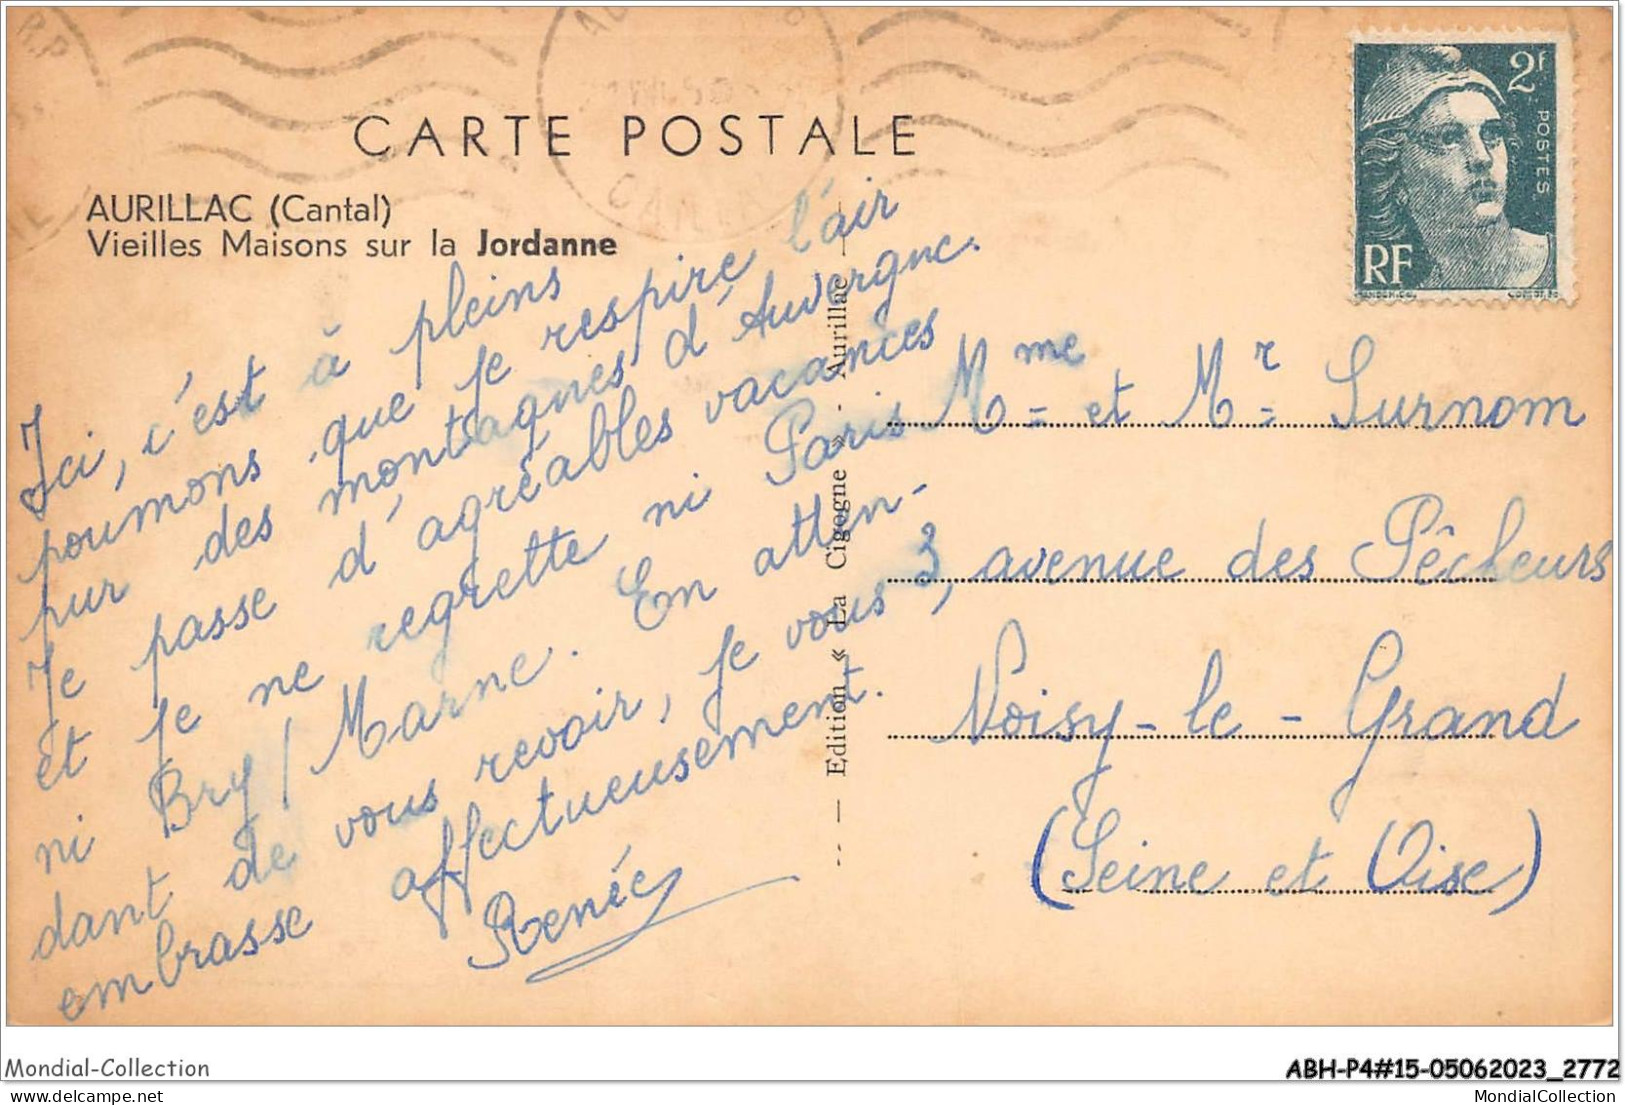 CARTE POSTALE
AURILLAC (Cantal)
Vieilles Maisons sur la Jordanne
2f
POSTES
RF
Ici, c'est à pleins
poumons que je respire l'air
pur des montagnes d'Auvergne.
Je passe d'agréables vacances
et je ne regrette ni Paris
ni Bry/Marne. En atten-
dant de vous revoir, je vous
embrasse affectueusement.
Renée
-- — Edition « La Cigogne » - Aurillac —
Mme = et Mr = Surnom
3, avenue des Pêcheurs
Noisy-le-Grand
(Seine et Oise)
Mondial-Collection
ABH-P4#15-05062023_2772
delcampe.net
MondialCollection